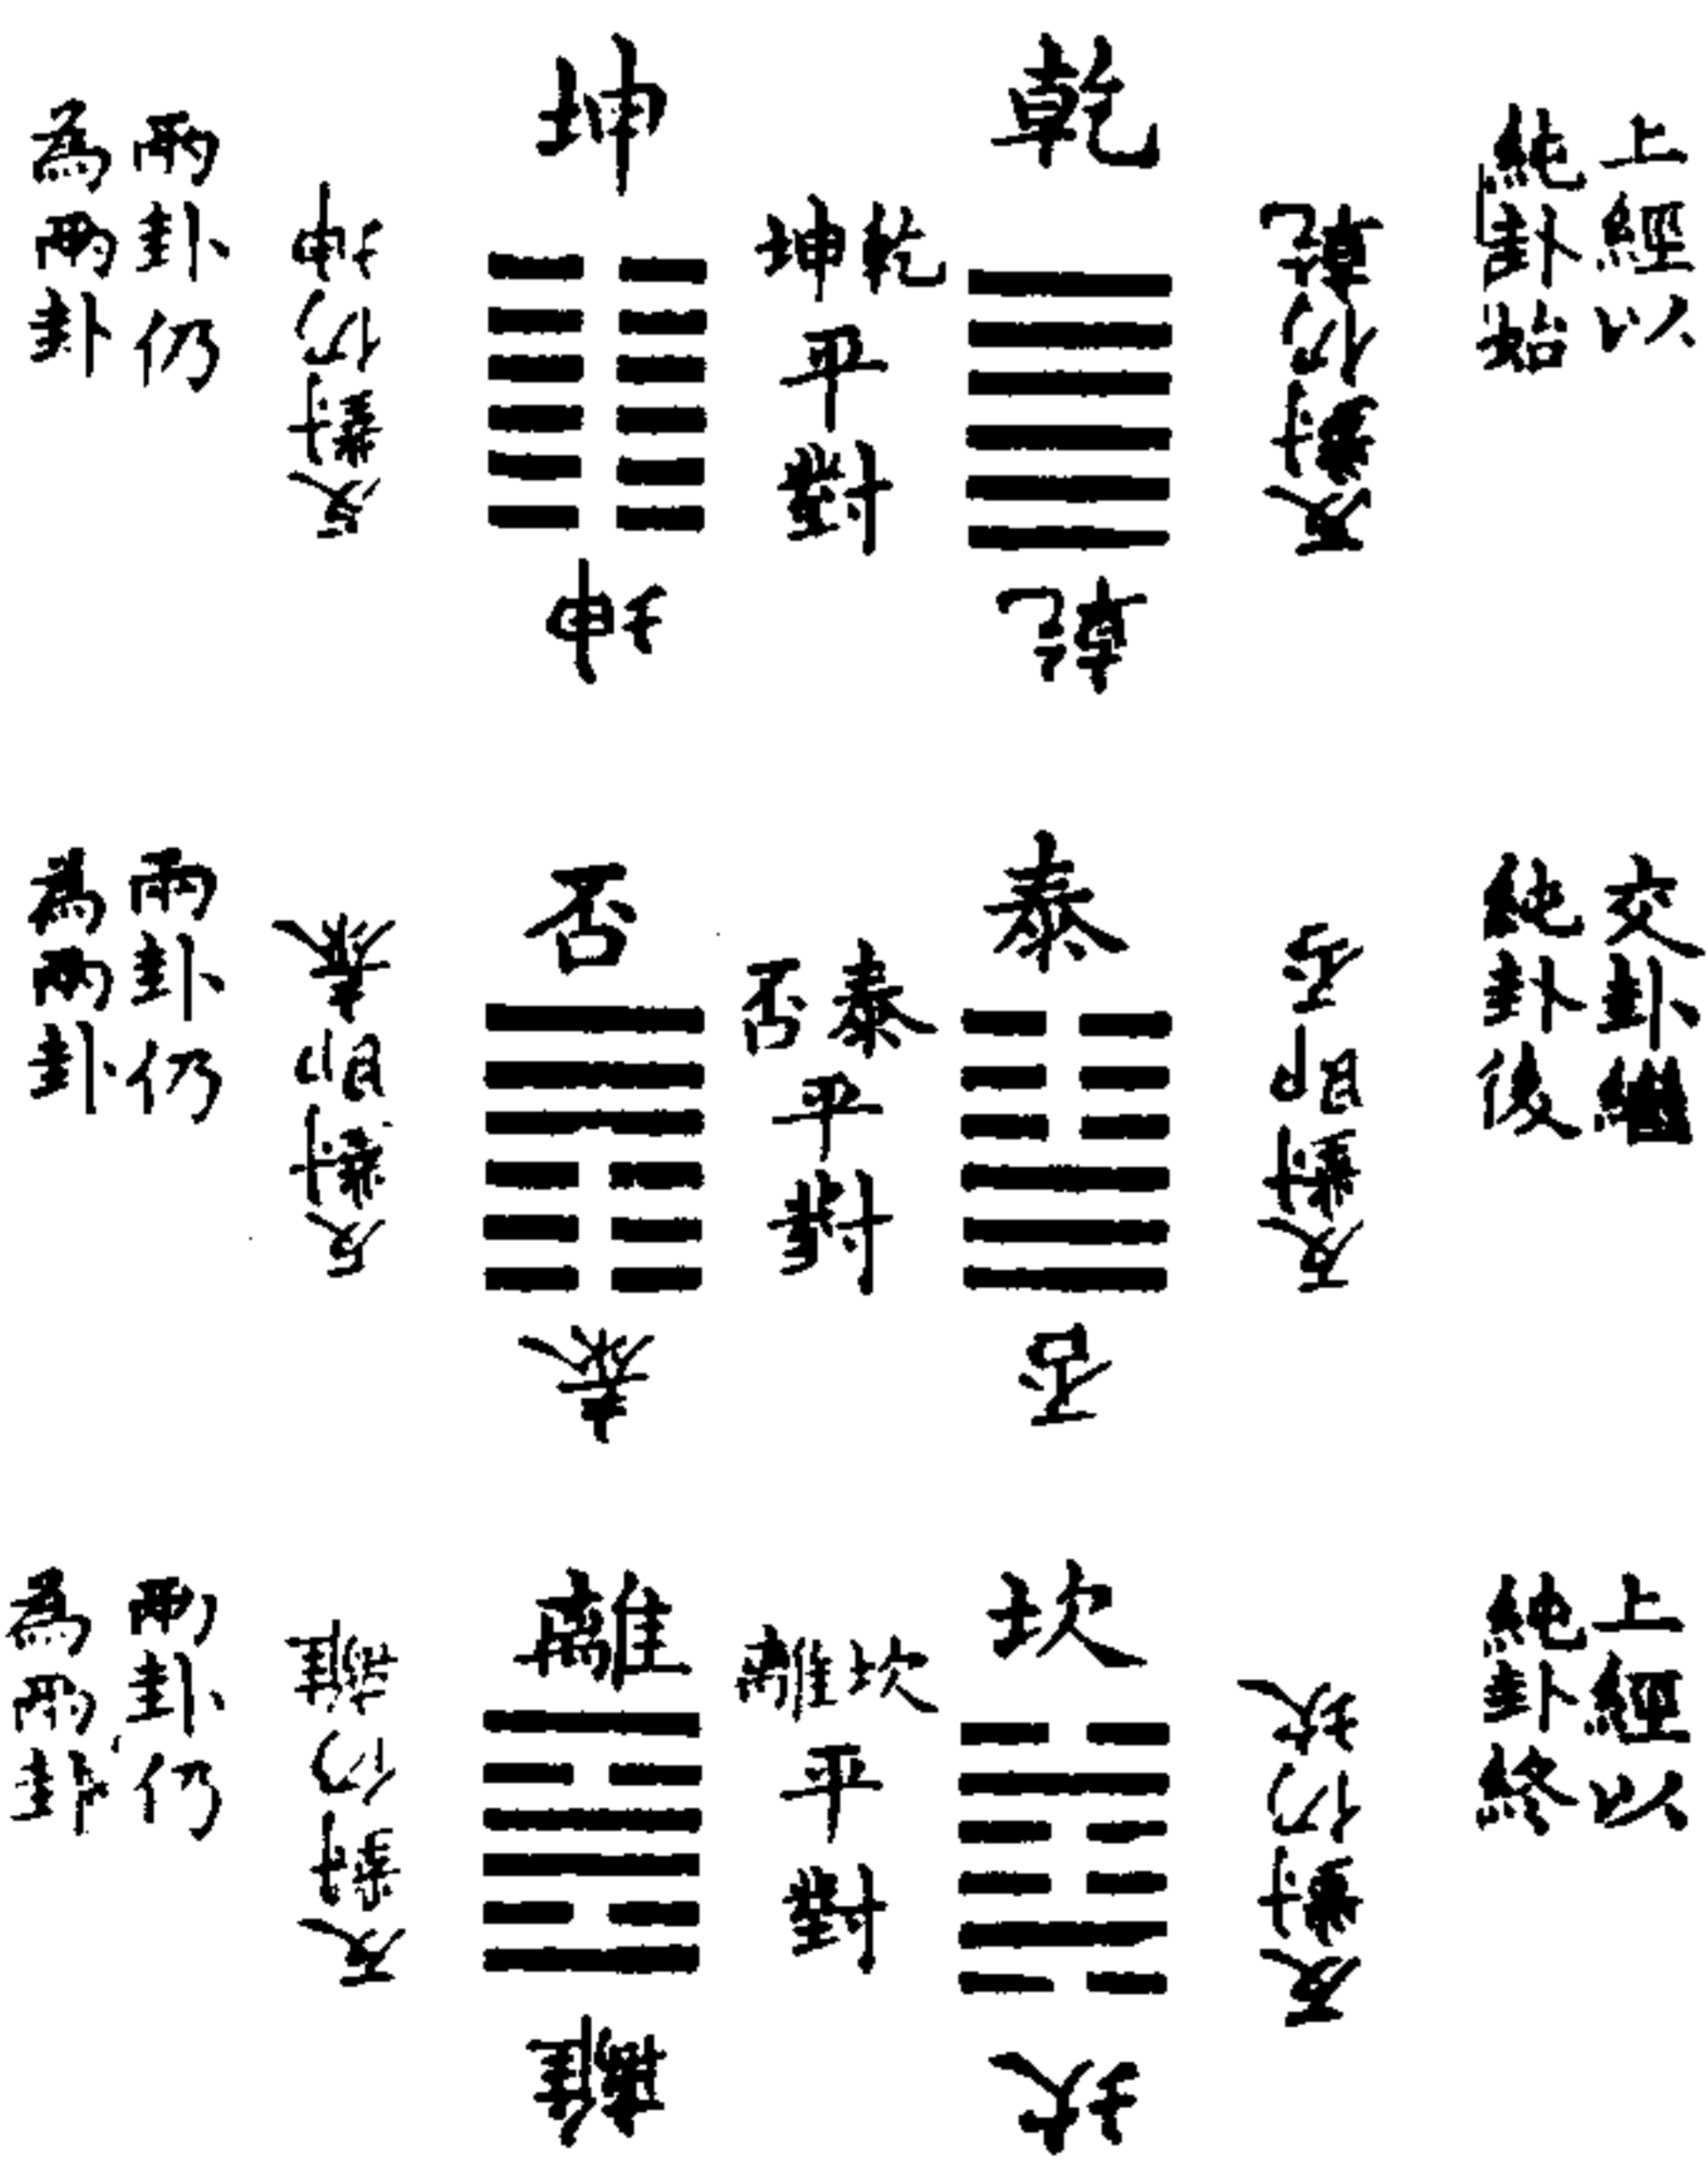 上經以
純卦始
反對仍乾
乾
乾
乾坤平對
坤
坤
反對仍坤
兩卦仍
為兩卦
交卦繼
純卦後
反對即否
泰
否
泰否平對
否
泰
反對即泰
兩卦仍
為兩卦
上經以
純卦終
反對仍坎
坎
坎
坎離平對
離
離
反對仍離
兩卦仍
為兩卦